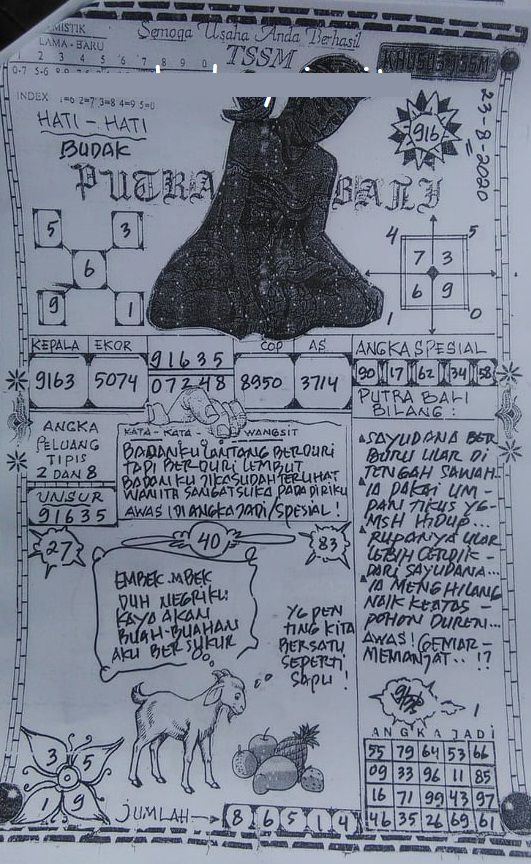 MISTIK
LAMA - BARU
Semoga Usaha Anda Berhasil
TSSM
INDEX : 1=6 2=7 3=8 4=9 5=0
HATI - HATI
BUDAK
PUTRA BALI
916
23-8-2020
5 3
6
9 1
4 5
7 3
6 9
1 0
KEPALA EKOR
9163 5074
91635
07248
COP AS
8950 3714
ANGKA SPESIAL
90 17 62 34 58
ANGKA
PELUANG
TIPIS
2 DAN 8
UNSUR
91635
KATA - KATA WANGSIT
BADANKU LANTANG BERDURI
TAPI BERDURI LEMBUT
BADANKU JIKA SUDAH TERLIHAT
WANITA SANGAT SUKA PADA DIRIKU
AWAS! DI ANGKA JADI/SPESIAL!
PUTRA BALI
BILANG :
SAYUDANA BER
BURU ULAR DI
TENGAH SAWAH..
IA PAKAI UM-
PAN TIKUS YG-
MSH HIDUP...
RUPANYA ULAR
LEBIH CERDIK-
DARI SAYUDANA...
IA MENGHILANG
NAIK KEATAS-
POHON DUREN...
AWAS! GEMAR-
MEMANJAT.. !?
27
40
83
EMBEK..MBEK
DUH NEGRIKU
KAYA AKAN
BUAH-BUAHAN
AKU BERSYUKUR
YG PEN
TING KITA
BERSATU
SEPERTI
SAPU!
3 5
1 9
JUMLAH
8 6 5 1 4
ANGKA JADI
55 79 64 53 66
09 33 96 11 85
16 71 99 43 97
46 35 26 69 61